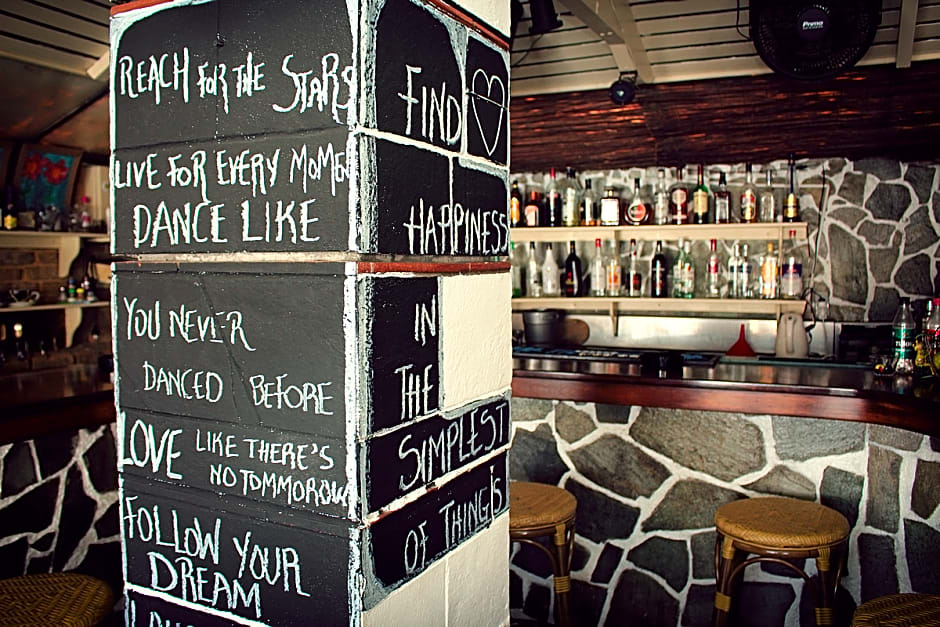 REACH FOR THE STARS
LIVE FOR EVERY MOME
DANCE LIKE
YOU NEVER
DANCED BEFORE
LOVE LIKE THERE'S
NO TOMMOROW
FOLLOW YOUR
DREAM
FIND
HAPPINESS
IN
THE
SIMPLEST
OF THING'S